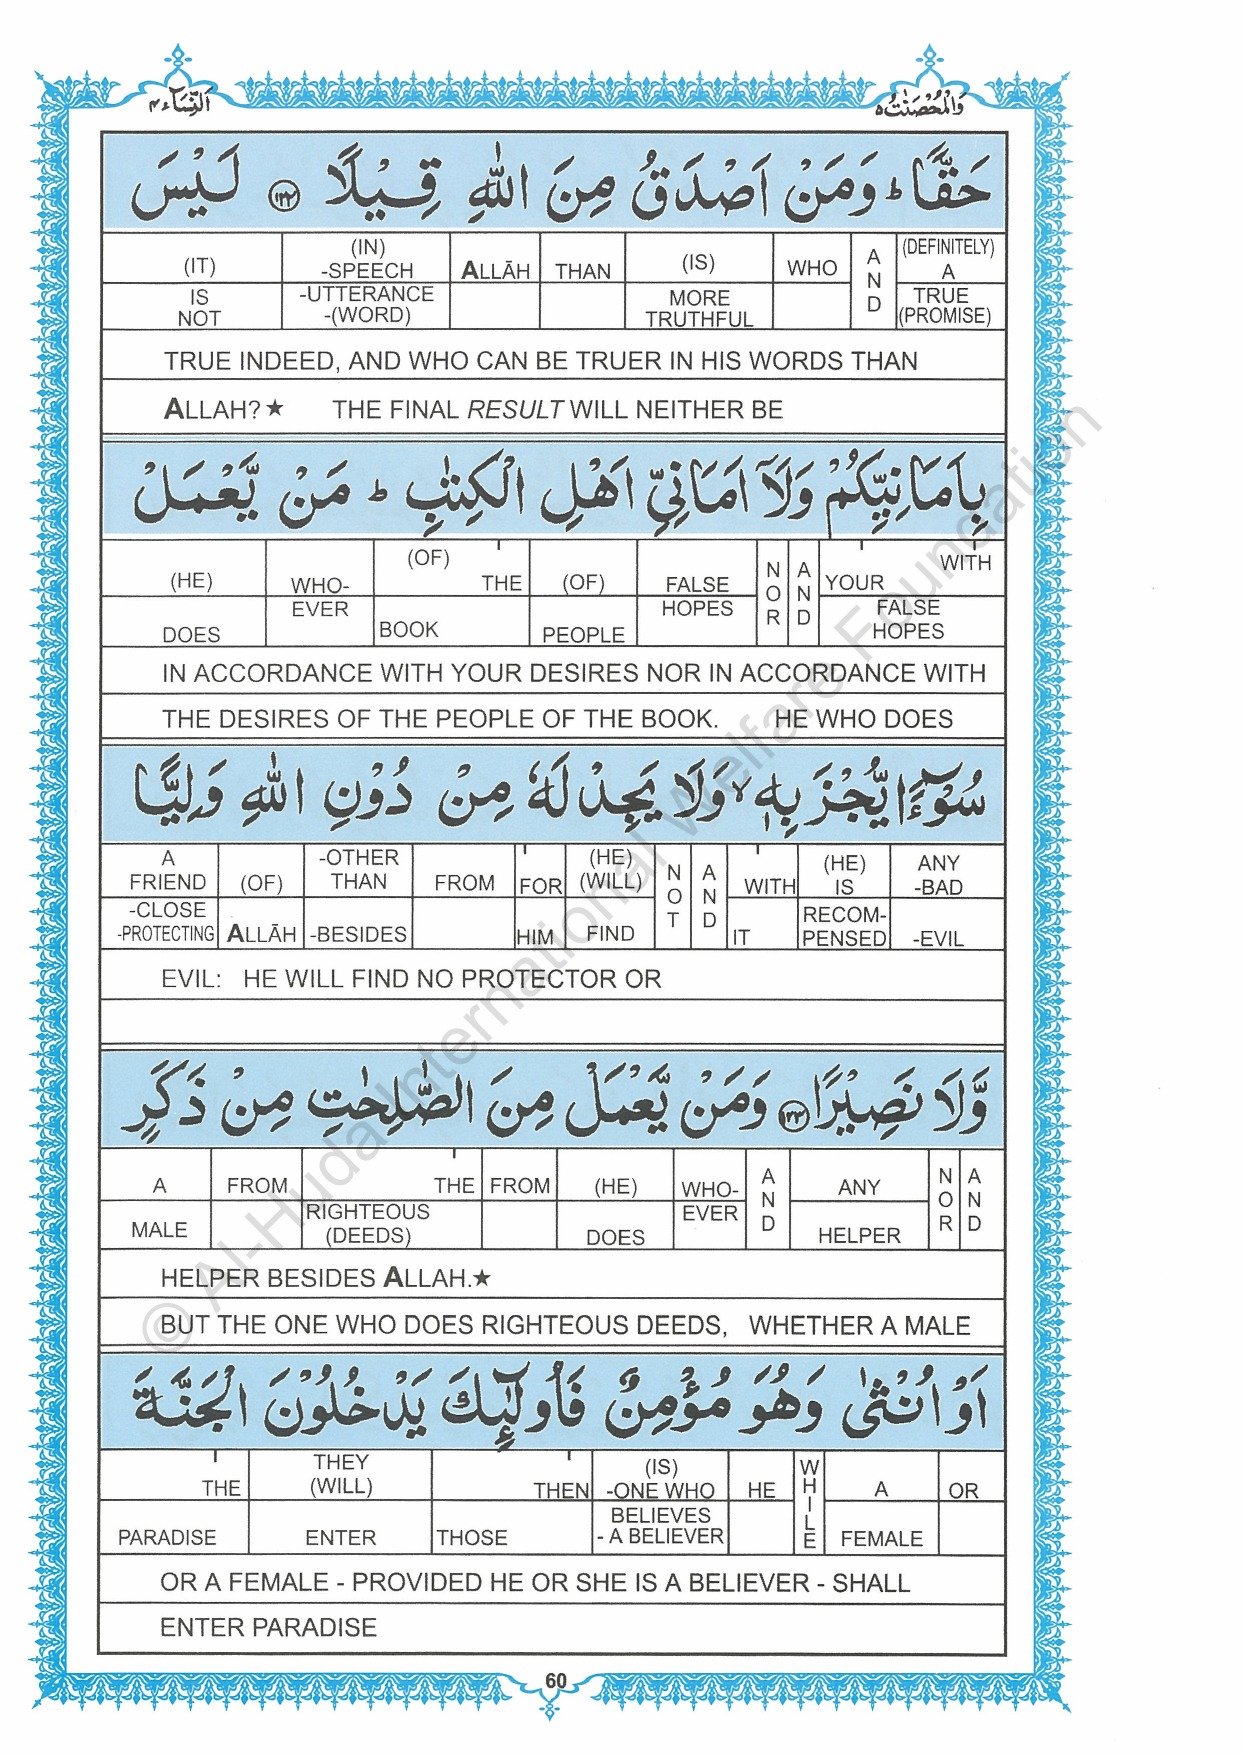 اَلنِّسَآء ٤
وَالْمُحْصَنٰتُ ٥
حَقًّا ؕ وَمَنْ اَصْدَقُ مِنَ اللّٰهِ قِيْلًا ١٢٢ لَيْسَ
(IT) (IN) -SPEECH ALLĀH THAN (IS) WHO AND (DEFINITELY) A
IS NOT -UTTERANCE -(WORD) MORE TRUTHFUL TRUE (PROMISE)
TRUE INDEED, AND WHO CAN BE TRUER IN HIS WORDS THAN
ALLAH?★ THE FINAL RESULT WILL NEITHER BE
بِاَمَانِيِّكُمْ وَلَآ اَمَانِيِّ اَهْلِ الْكِتٰبِ ؕ مَنْ يَّعْمَلْ
(HE) WHO- (OF) THE (OF) FALSE NOR AND YOUR WITH
DOES EVER BOOK PEOPLE HOPES FALSE HOPES
IN ACCORDANCE WITH YOUR DESIRES NOR IN ACCORDANCE WITH
THE DESIRES OF THE PEOPLE OF THE BOOK. HE WHO DOES
سُوْٓءًا يُّجْزَ بِهٖ ۙ وَلَا يَجِدْ لَهٗ مِنْ دُوْنِ اللّٰهِ وَلِيًّا
A FRIEND (OF) -OTHER THAN FROM FOR (HE) (WILL) NOT AND WITH (HE) IS ANY -BAD
-CLOSE -PROTECTING ALLĀH -BESIDES HIM FIND IT RECOM- PENSED -EVIL
EVIL: HE WILL FIND NO PROTECTOR OR
وَّلَا نَصِيْرًا ١٢٣ وَمَنْ يَّعْمَلْ مِنَ الصّٰلِحٰتِ مِنْ ذَكَرٍ
A FROM THE FROM (HE) WHO- AND ANY NOR AND
MALE RIGHTEOUS (DEEDS) DOES EVER HELPER
HELPER BESIDES ALLAH.★
BUT THE ONE WHO DOES RIGHTEOUS DEEDS, WHETHER A MALE
اَوْ اُنْثٰى وَهُوَ مُؤْمِنٌ فَاُولٰٓئِكَ يَدْخُلُوْنَ الْجَنَّةَ
THE THEY (WILL) THEN (IS) -ONE WHO HE WHILE A OR
PARADISE ENTER THOSE BELIEVES - A BELIEVER FEMALE
OR A FEMALE - PROVIDED HE OR SHE IS A BELIEVER - SHALL
ENTER PARADISE
60
© Al-Huda International Welfare Foundation